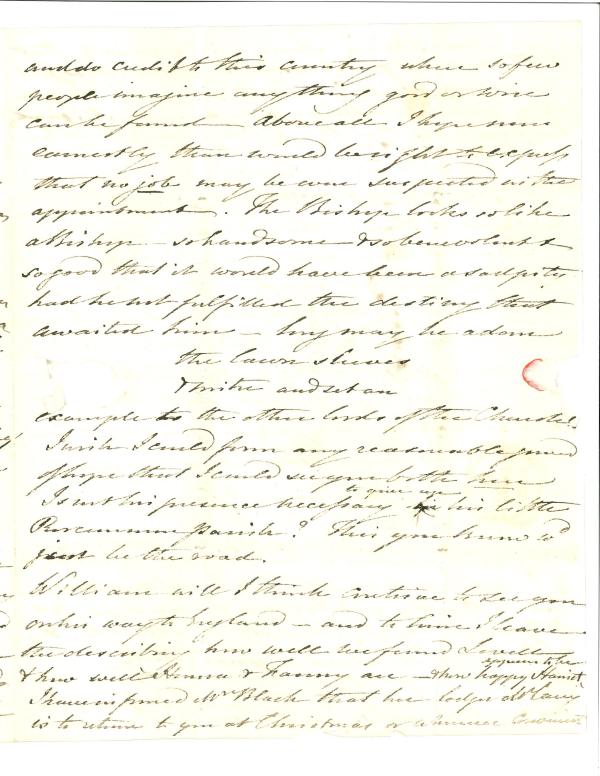 and do credit to this country where so few
people imagine any thing good or wise
can be found – Above all I hope more
earnestly than would be right to express
that no job may be ever suspected in the
appointment. The Bishop looks so like
a Bishop – so handsome & so benevolent &
so good that it would have been a sad pity
had he not fulfilled the destiny that
awaited him – long may he adorn
the lawn sleeves
& mitre and set an
example to the other lords of the Church.
I wish I could form any reasonable ground
of hope that I could see you both here
Is not his presence necessary to give up his little
Roscommon parish? This you know wd
just be the road.
William will I think contrive to see you
on his way to England – and to him I leave
the describing how well we found Lovell
& how well Honora & Fanny are – & how happy Harriet appears to be
I have informed Mr Black that her lodger
is to return to you at Christmas or whenever convenient